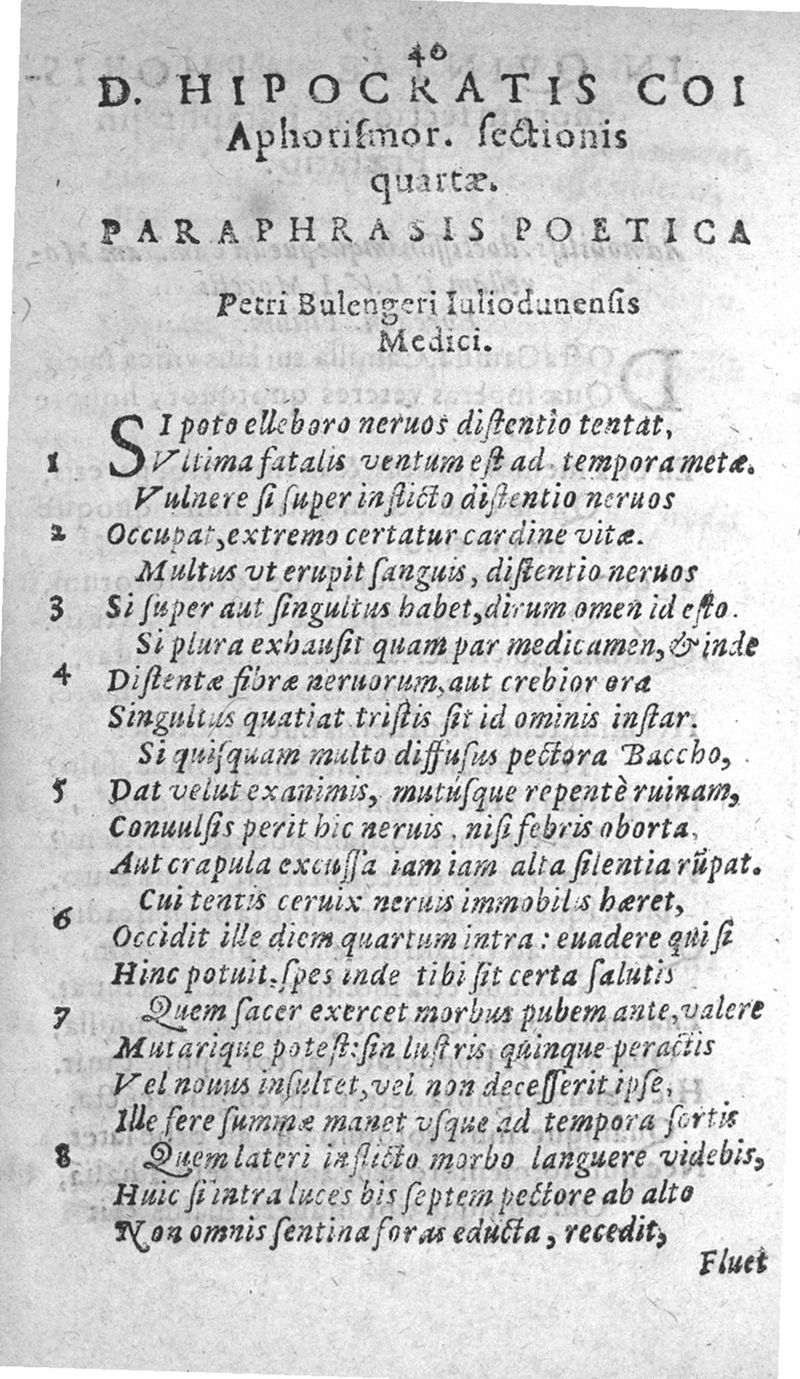 40
D. HIPOCRATIS COI
Aphorismor. sectionis
quartæ.
PARAPHRASIS POETICA
Petri Bulengeri Iuliodunensis
Medici.
SI poto elleboro neruos distentio tentat,
1 Vltima fatalis ventum est ad tempora metæ.
Vulnere si super inflicto distentio neruos
2 Occupat, extremo certatur cardine vitæ.
Multus vt erupit sanguis, distentio neruos
3 Si super aut singultus habet, dirum omen id esto.
Si plura exhausit quam par medicamen, & inde
4 Distentæ fibræ neruorum, aut crebior ora
Singultus quatiat tristis sit id ominis instar.
Si quisquam multo diffusus pectora Baccho,
5 Dat velut exanimis, mutúsque repentè ruinam,
Conuulsis perit hic neruis, nisi febris oborta,
Aut crapula excussa iam iam alta silentia rũpat.
Cui tentis ceruix neruis immobilis hæret,
6 Occidit ille diem quartum intra: euadere qui si
Hinc potuit, spes inde tibi sit certa salutis
7 Quem sacer exercet morbus pubem ante, valere
Mutarique potest: sin lustris quinque peractis
Vel nouus insultet, vel non decesserit ipse,
Ille fere summæ manet vsque ad tempora sortis
8 Quem lateri inflicto morbo languere videbis,
Huic si intra luces bis septem pectore ab alto
Non omnis sentina foras educta, recedit,
Fluet